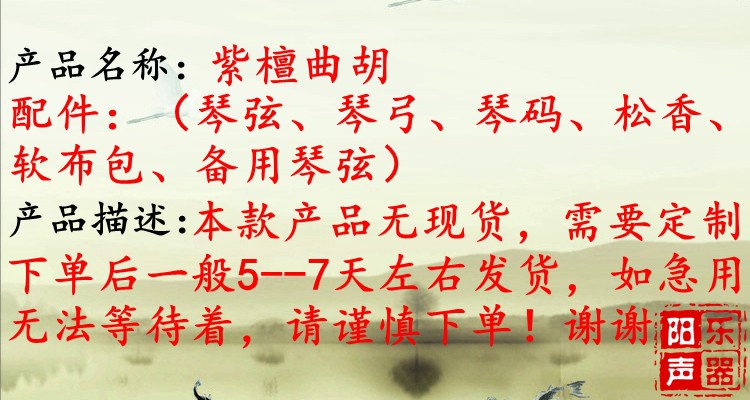 产品名称：紫檀曲胡
配件：（琴弦、琴弓、琴码、松香、
软布包、备用琴弦）
产品描述:本款产品无现货，需要定制
下单后一般5--7天左右发货，如急用
无法等待着，请谨慎下单！谢谢
阳声乐器